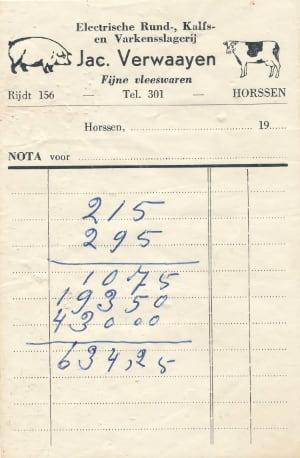 Electrische Rund-, Kalfs-
en Varkensslagerij
Jac. Verwaayen
Fijne vleeswaren
Rijdt 156 — Tel. 301 — HORSSEN
Horssen, .................... 19.....
NOTA voor ....................
215
295
1075
19350
430 00
634,25